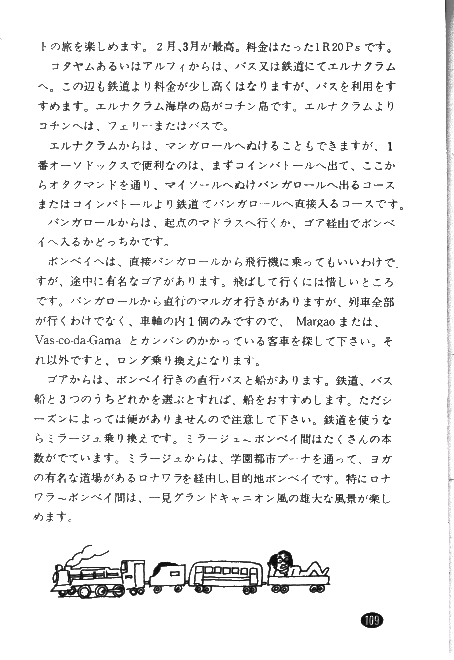 トの旅を楽しめます。2月、3月が最高。料金はたった1R20Psです。
コタヤムあるいはアルフィからは、バス又は鉄道にてエルナクラム
へ。この辺も鉄道より料金が少し高くはなりますが、バスを利用をす
すめます。エルナクラム海岸の島がコチン島です。エルナクラムより
コチンへは、フェリーまたはバスで。
エルナクラムからは、マンガロールへぬけることもできますが、1
番オーソドックスで便利なのは、まずコインバトールへ出て、ここか
らオタクマンドを通り、マイソールへぬけバンガロールへ出るコース
またはコインバトールより鉄道てバンガロールへ直接入るコースです。
バンガロールからは、起点のマドラスへ行くか、ゴア経由でボンベ
イへ入るかどっちかです。
ボンベイへは、直接バンガロールから飛行機に乗ってもいいわけで
すが、途中に有名なゴアがあります。飛ばして行くには惜しいところ
です。バンガロールから直行のマルガオ行きがありますが、列車全部
が行くわけでなく、車輪の内1個のみですので、Margaoまたは、
Vas-co-da-Gama とカンバンのかかっている客車を探して下さい。そ
れ以外ですと、ロンダ乗り換えになります。
ゴアからは、ボンベイ行きの直行バスと船があります。鉄道、バス
船と3つのうちどれかを選ぶとすれば、船をおすすめします。ただシ
ーズンによっては便がありませんので注意して下さい。鉄道を使うな
らミラージュ乗り換えです。ミラージュ〜ボンベイ間はたくさんの本
数がでています。ミラージュからは、学園都市プーナを通って、ヨガ
の有名な道場があるロナワラを経由し、目的地ボンベイです。特にロナ
ワラ〜ボンベイ間は、一見グランドキャニオン風の雄大な風景が楽し
めます。
109